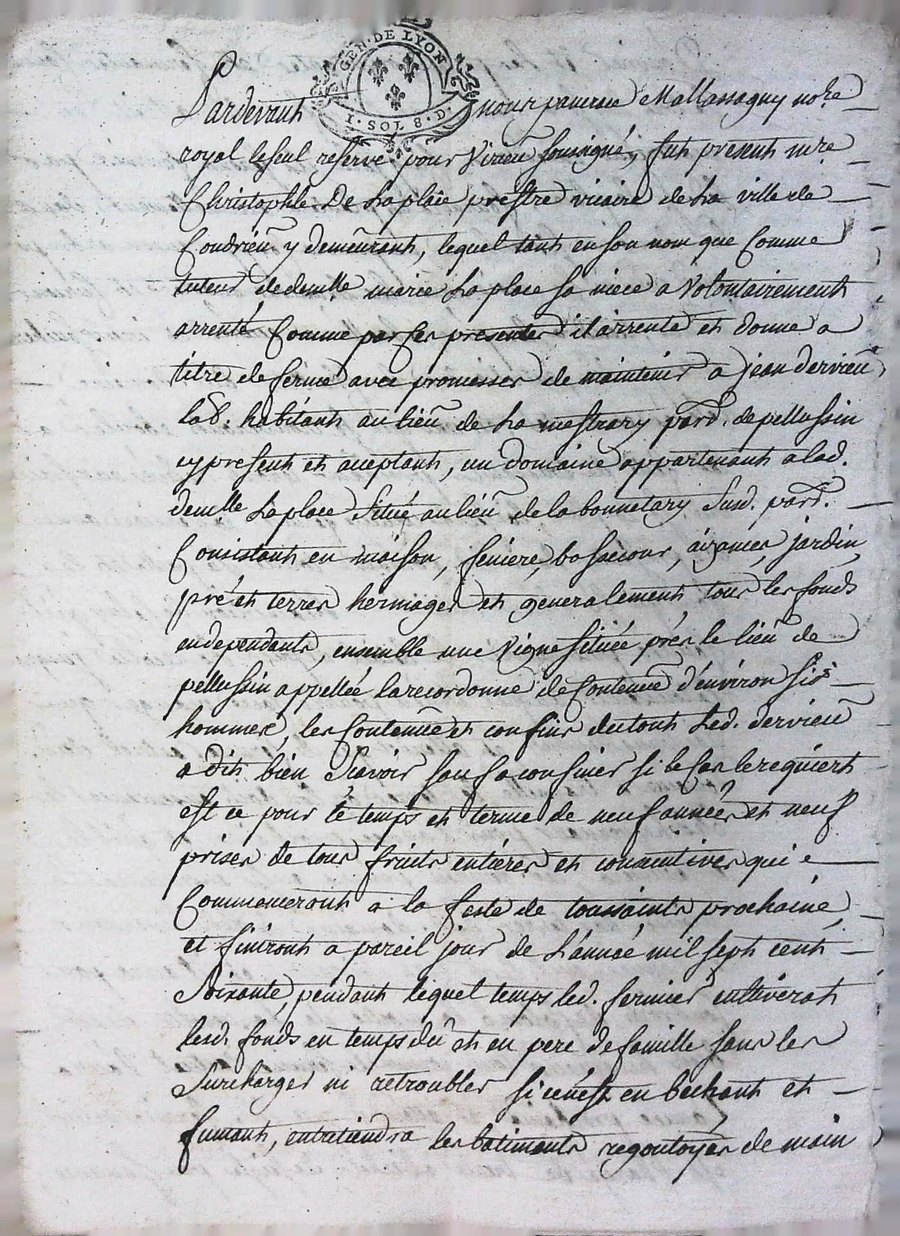 GEN. DE LYON
1. SOL 8. D.
Pardevant nous Mallassagny no.re
royal le seul reservé pour Virieu soussigné, fut present m.re
Christophle De La plaie prestre vicaire de la ville de
Condrieu y demeurant, lequel tant en son nom que Comme
tuteur de demlle marie La place sa niece a Volontairement
arrenté Comme par ses presentes il arrente et donne a
titre de ferme avec promesses de maintenir a jean dervieu
lab. habitant au lieu de La mestrary parr. de pellussin
cy present et aceptant, un domaine appartenant a lad.
demlle La place Situé au lieu de la bonnetary Susd. parr.
Consistant en maison, feniere, bassecour, aizances, jardin,
pré et terres hermages et generalement tous les fonds
en dependants, ensemble une Vigne Située prés le lieu de
pellussin appellée la recordonne de Contenue d'environ six
hommes, les Contenues et confins du tout Led. dervieu
a dit bien Scavoir sauf a confiner si le Cas le requiert
est ce pour le temps et terme de neuf années et neuf
prises de tous fruits entiéres et consecutives qui
Commanceront a la feste de toussaints prochaine,
et finiront a pareil jour de L'année mil sept cent
Soixante, pendant lequel temps led. fermier cultiverat
lesd. fonds en temps dû et en pere de famille sans les
Surcharger ni retroubler si ce n'est en bechant et
fumant, entretiendra les batiments regoutoyés de main